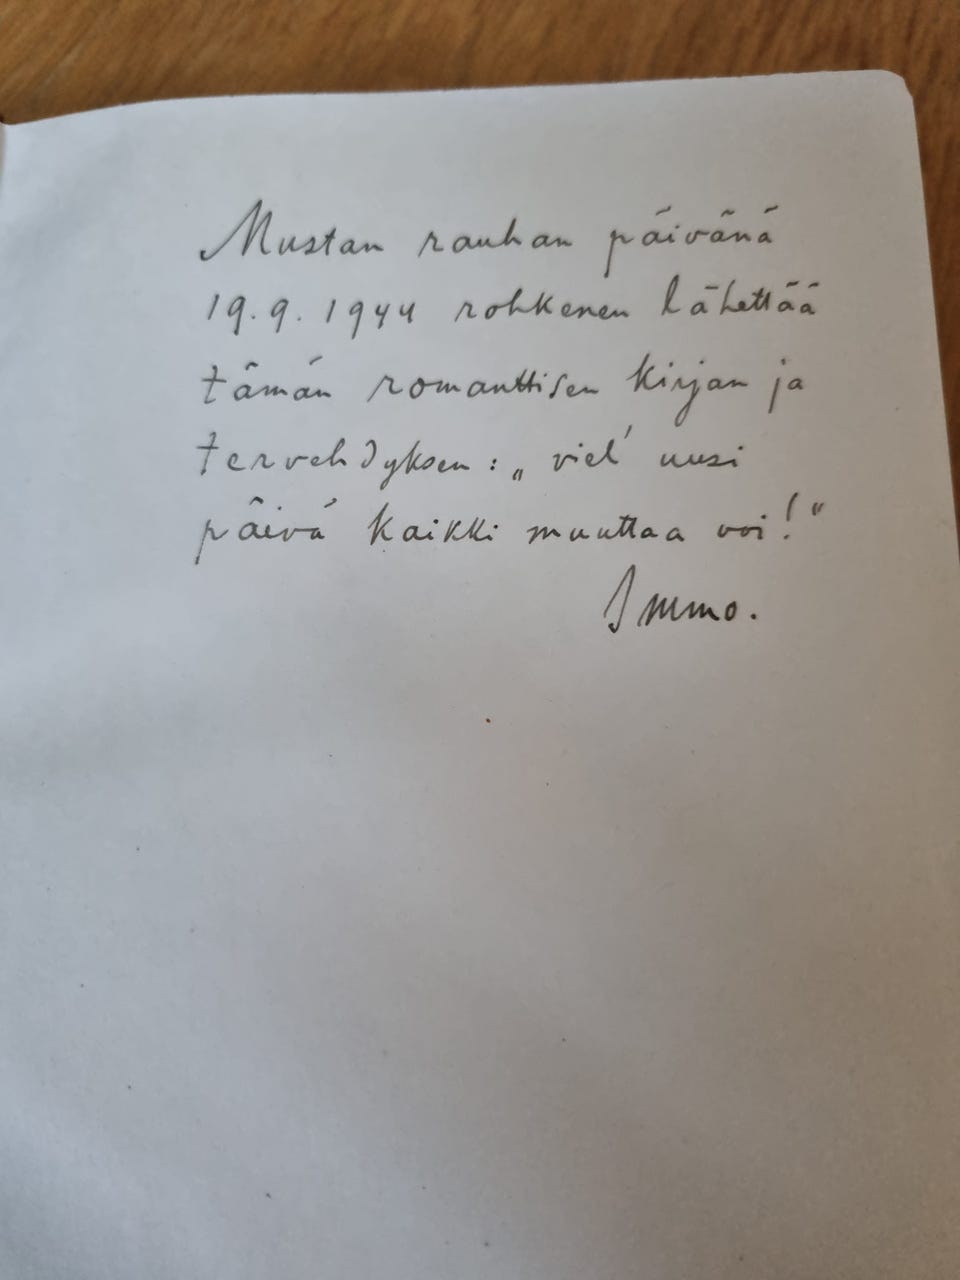 Mustan rauhan päivänä
19.9.1944 rohkenen lähettää
tämän romanttisen kirjan ja
tervehdyksen: „viel' uusi
päivä kaikki muuttaa voi!"
Immo.